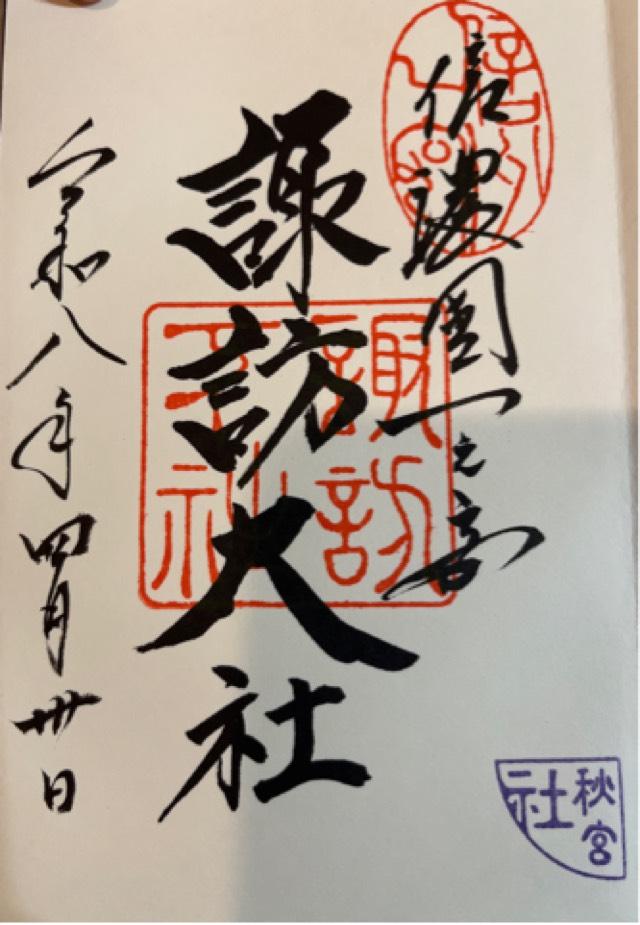 信濃國一之宮
諏訪大社
令和八年四月卅日
諏訪
大社
秋宮
社